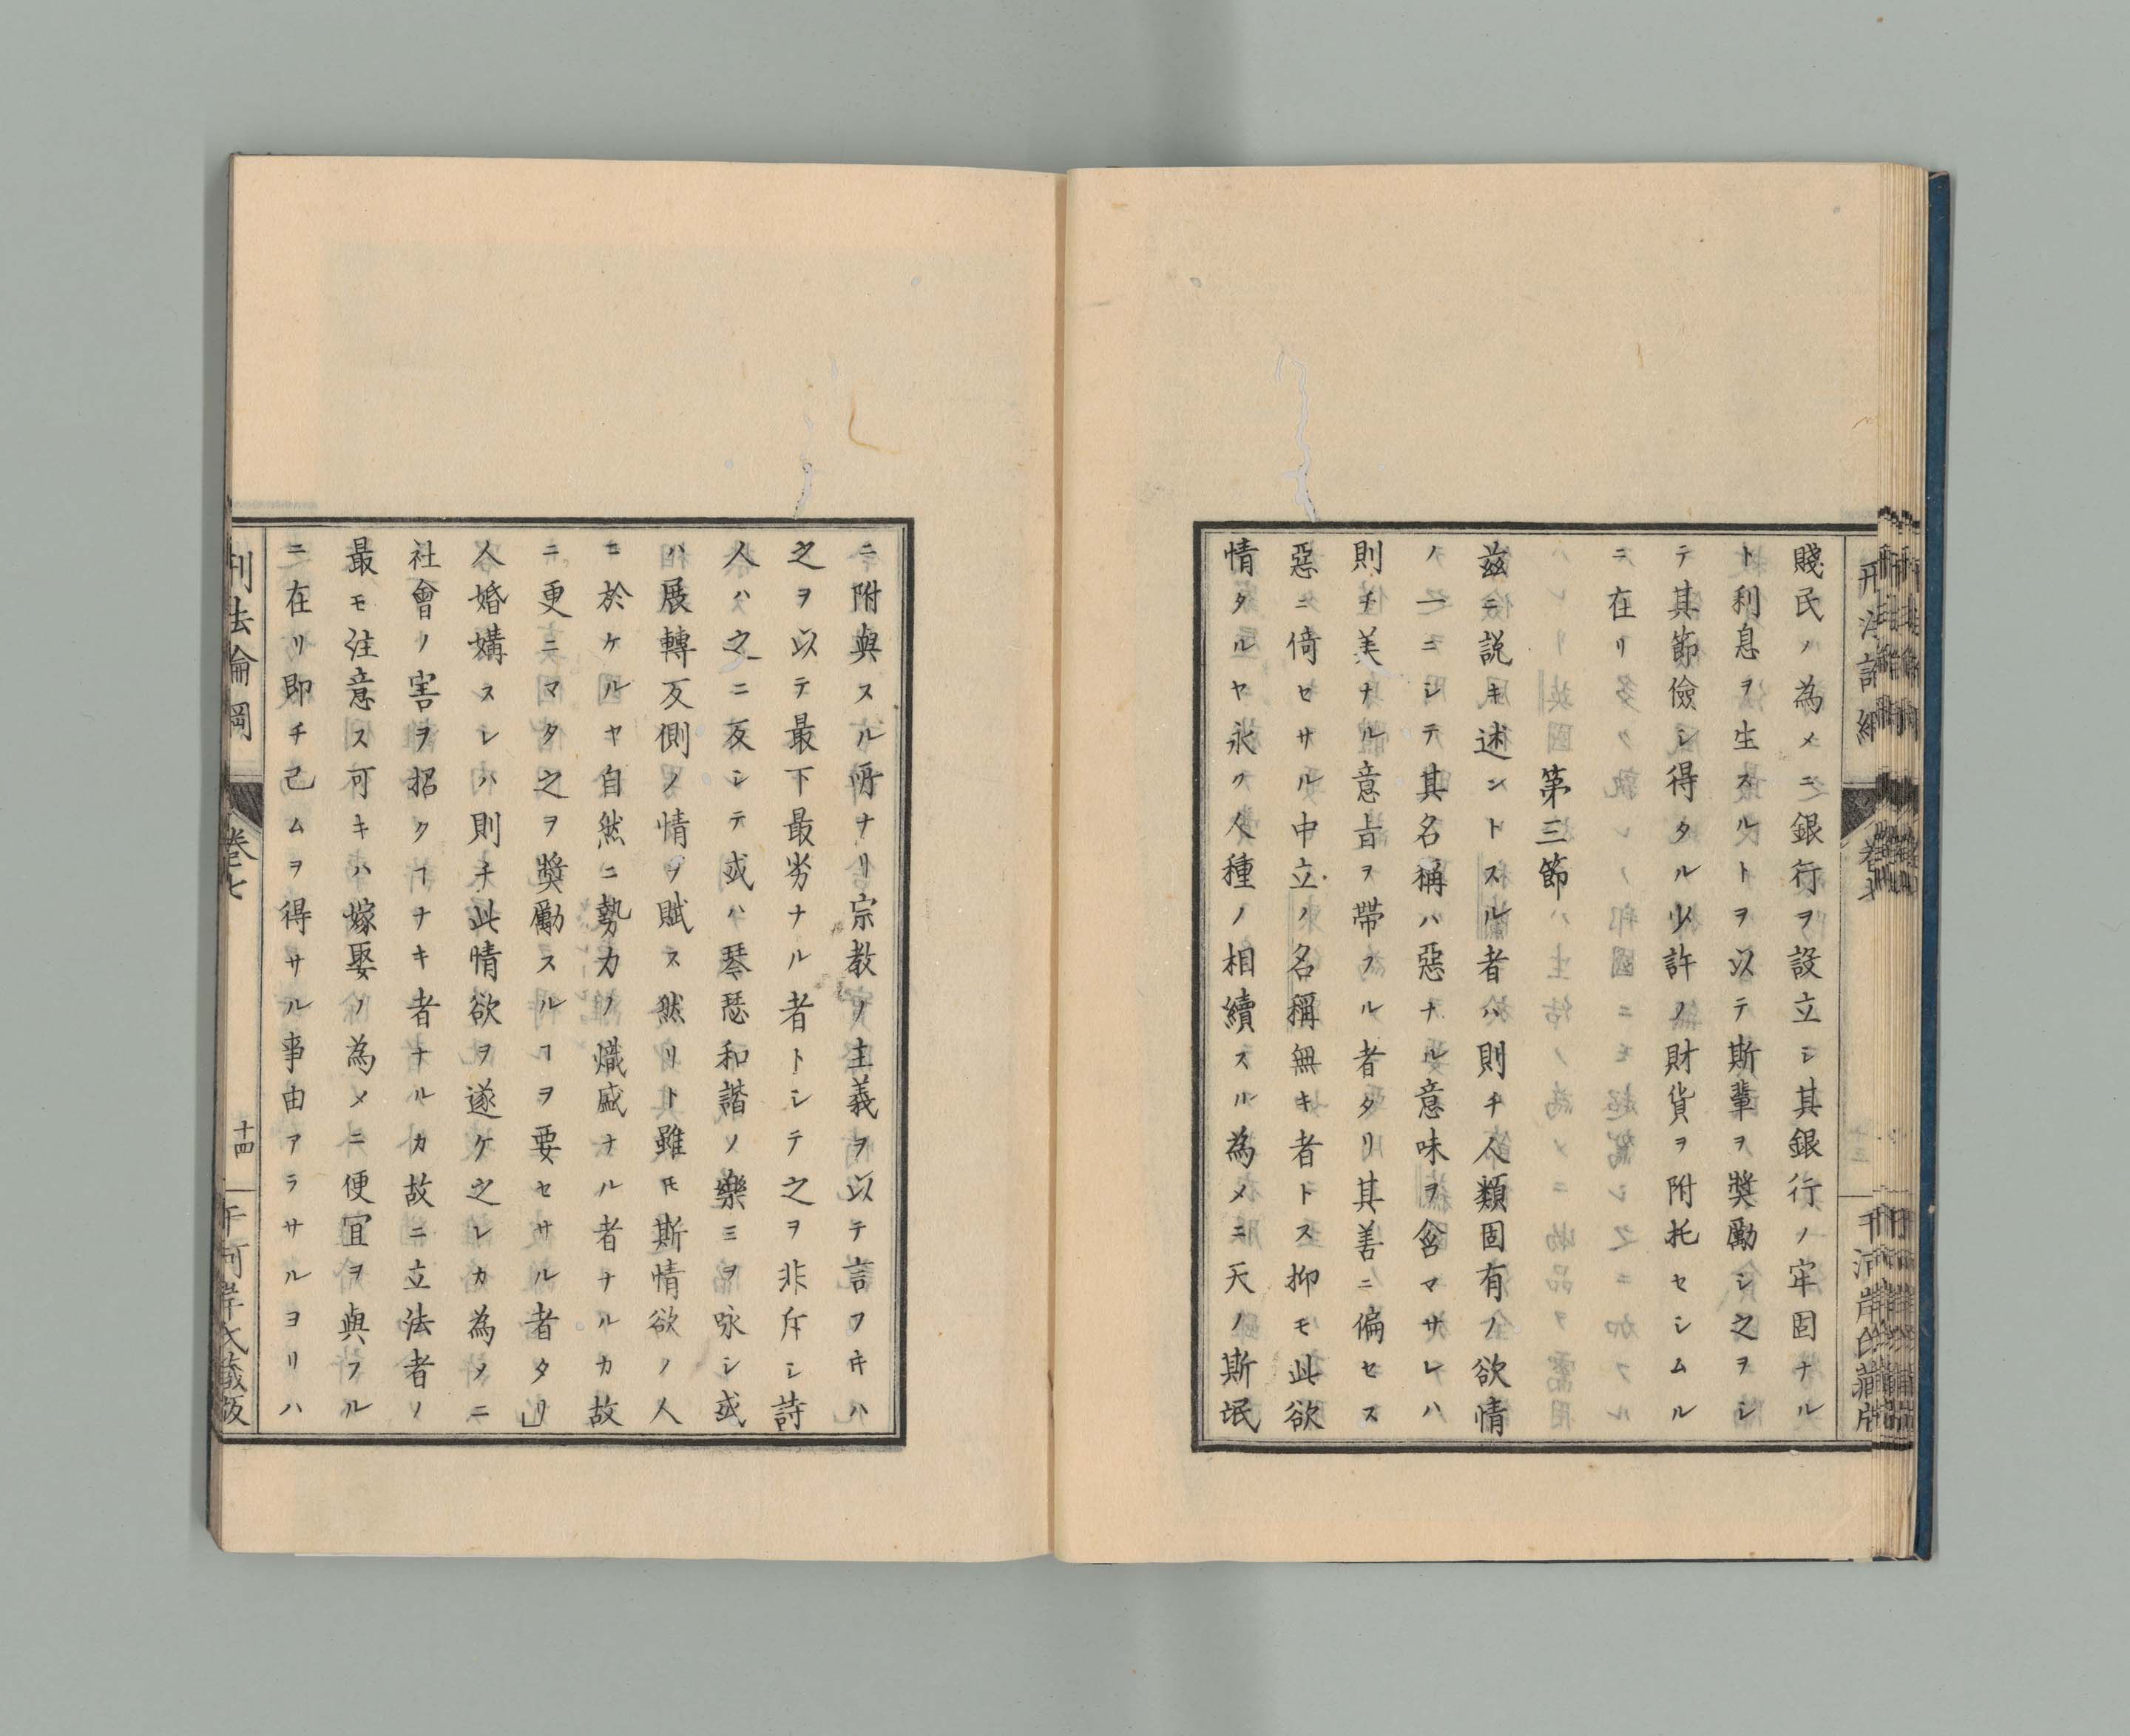 賤民ノ為メニ銀行ヲ設立シ其銀行ノ牢固ナル
ト利息ヲ生スルトヲ以テ斯輩ヲ奬勵シ之ヲシ
テ其節儉シ得タル少許ノ財貨ヲ附托セシムル
ニ在リ
第三節
茲ニ説キ述ントスル者ハ則チ人類固有ノ欲情
ノ一ニシテ其名稱ハ惡ナル意味ヲ含マサレハ
則チ美ナル意旨ヲ帶フル者タリ其善ニ偏セス
惡ニ倚セサル中立ノ名稱無キ者トス抑モ此欲
情タルヤ永ク人種ノ相續スル為メニ天ノ斯氓
ニ附與スル所ナリ宗教ノ主義ヲ以テ言フキハ
之ヲ以テ最下最劣ナル者トシテ之ヲ非斥シ詩
人ハ之ニ反シテ或ハ琴瑟和諧ノ樂ミヲ咏シ或
ハ展轉反側ノ情ヲ賦ス然リト雖モ斯情欲ノ人
ニ於ケルヤ自然ニ勢力ノ熾盛ナル者ナルカ故
ニ更ニマタ之ヲ奬勵スルヿヲ要セサル者タリ」
人婚媾スレハ則チ此情欲ヲ遂ケ之レカ為メニ
社會ノ害ヲ招クヿナキ者ナルカ故ニ立法者ノ
最モ注意ス可キハ嫁娶ノ為メニ便宜ヲ與フル
ニ在リ即チ己ムヲ得サル事由アラサルヨリハ
刑法論綱
卷七
十四
千河岸氏藏版